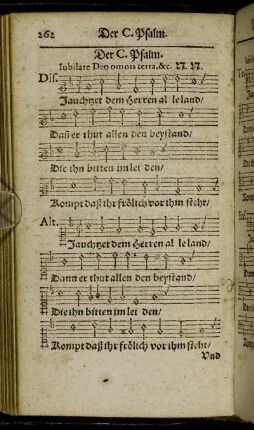 262 Der C. Psalm.
Der C. Psalm.
Iubilate Deo omnis terra, &c. N. N.
Dis.
Jauchtzet dem Herren al le land/
Dañ er thut allen den beystand/
Die ihn bitten im lei den/
Kompt daß ihr frölich vor ihm steht/
Alt.
Jauchtzet dem Herren al le land/
Dann er thut allen den beystand/
Die ihn bitten im lei den/
Kompt daß ihr frölich vor ihm steht/
Vnd